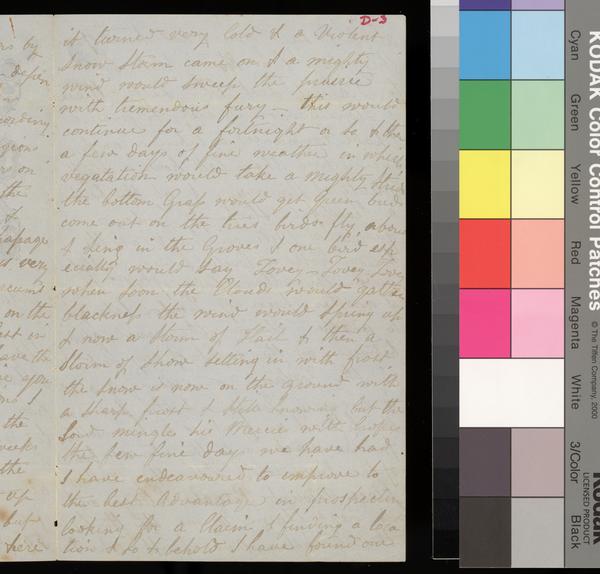 D-3
it turned very Cold & a Violent
Snow Storm came on & a mighty
wind would sweep the prairie
with tremendous fury - this would
continue for a fortnight or so & then
a few days of fine weather in which
vegatation would take a mighty
the bottom Grass would get green buds
come out on the trees birds fly about
& Sing in the Groves & one bird esp
ecially would Say Tovey- Tovey
when soon the Clouds would gather
blackness the wind would Spring up
& now a Storm of Hail & then a
Storm of Snow setting in with frost
the Snow is now on the ground with
a Sharp frost & Still Snowing but the
Lord mingles his Mercies with
the few fine days we have had
I have endeavoured to improve to
the best Advantage in prospecting
looking for a Claim & finding a loca
tion & so & behold I have found one
rs by
ording
rs on
the
&
is very
on the
est in
ave the
you
&
the
week
the
up
but
here
KODAK Color Control Patches
© The Tiffen Company, 2000
Kodak
LICENSED PRODUCT
Cyan
Green
Yellow
Red
Magenta
White
3/Color
Black